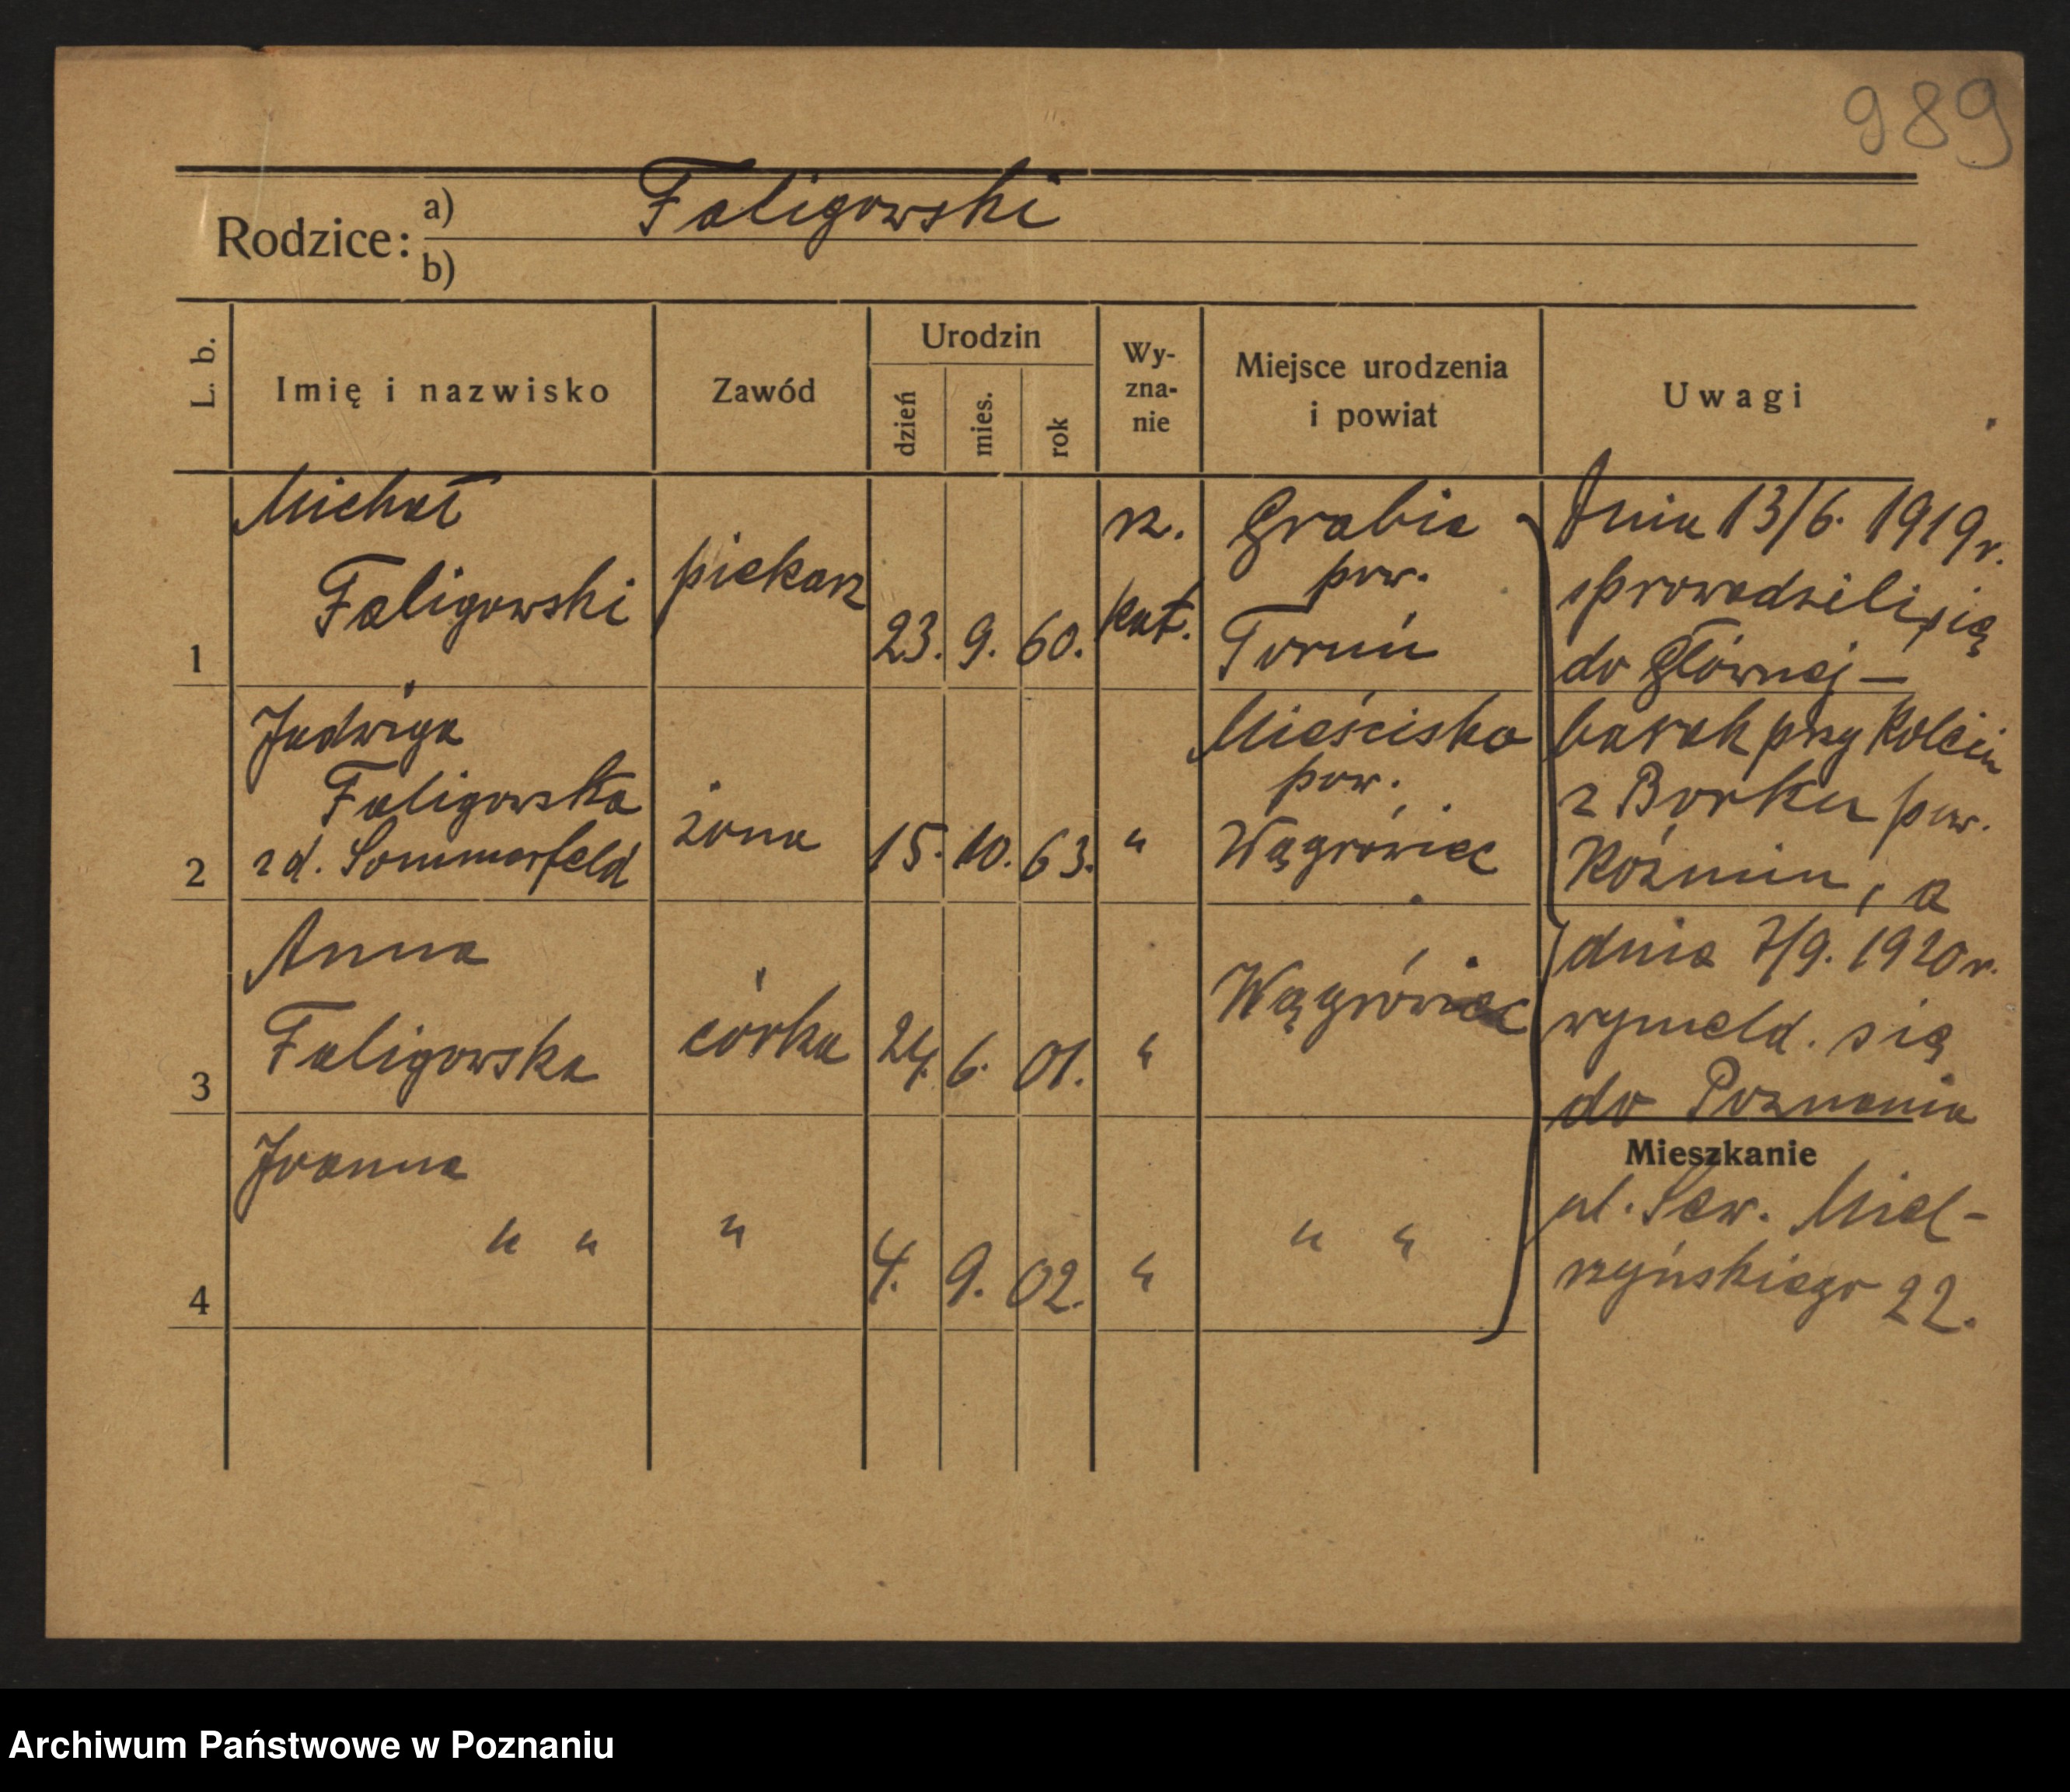 989
Rodzice: a) Faligowski
b)
L. b. Imię i nazwisko Zawód Urodzin dzień mies. rok Wy-zna-nie Miejsce urodzenia i powiat Uwagi
1 Michał Faligowski piekarz 23. 9. 60. rz. kat. Grabia pow. Toruń
2 Jadwiga Faligowska z d. Sommerfeld żona 15. 10. 63. " Mieścisko pow. Wągrówiec
3 Anna Faligowska córka 24. 6. 01. " Wągrówiec
4 Joanna " " " 4. 9. 02. " " "
Dnia 13/6. 1919 r.
sprowadzili się
do Głównej —
barak przy Kolei
z Borku pow.
Koźmin, a
dnia 7/9. 1920 r.
wymeld. się
do Poznania
Mieszkanie
ul. Sew. Miel-
żyńskiego 22.
Archiwum Państwowe w Poznaniu